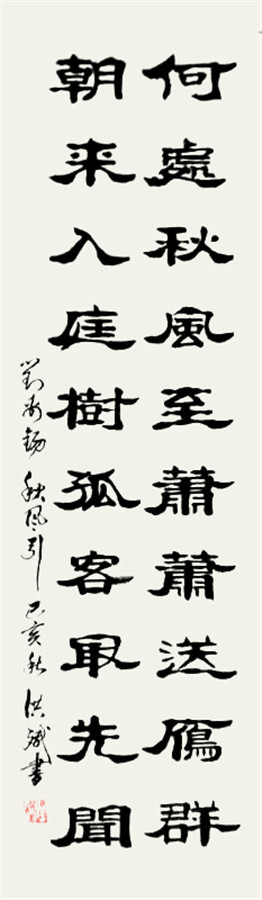 何處秋風至蕭蕭送鴈群
朝来入庭樹孤客最先聞
劉禹錫秋風引己亥秋洪斌書